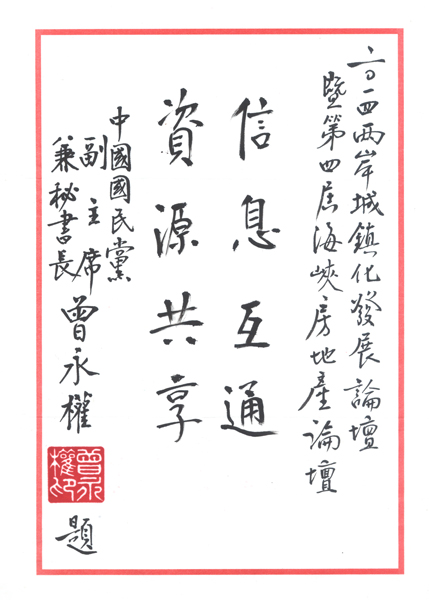 二〇一四兩岸城鎮化發展論壇
暨第四屆海峽房地產論壇
信息互通
資源共享
中國國民黨
副主席
兼秘書長
曾永權
曾永權印
題